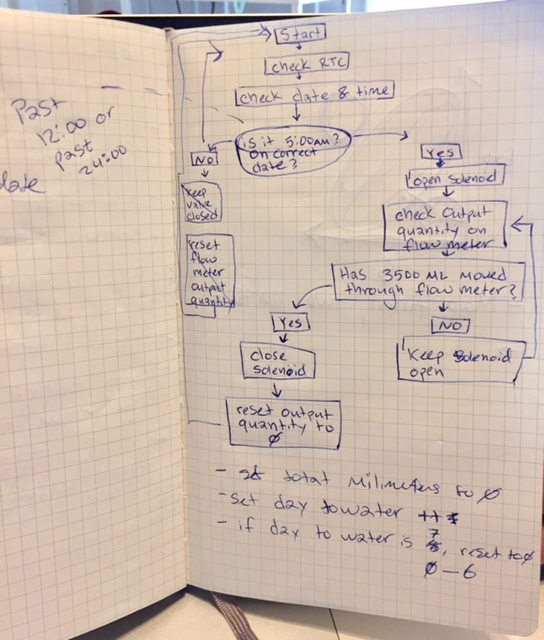 Past
12:00 or
Past
24:00
date
Start
check RTC
check date & time
is it 5:00AM?
on correct
date?
NO
Keep
valve
closed
reset
flow
meter
output
quantity
Yes
open solenoid
check output
quantity on
flow meter
Has 3500 ML moved
through flow meter?
NO
Keep solenoid
open
Yes
close
solenoid
reset output
quantity to
0
- set total Milimeters to 0
- set day to water ++
- if day to water is 7, reset to 0
0-6